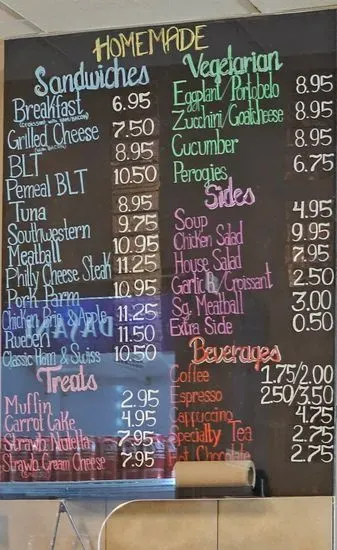 HOMEMADE
Sandwiches
Breakfast 6.95
Grilled Cheese 7.50
BLT 8.95
Pemeal BLT 10.50
Tuna 8.95
Southwestern 9.75
Meatball 10.95
Philly Cheese Steak 11.25
Pork Parm 10.95
Chicken Brie & Apple 11.25
Rueben 11.50
Classic Ham & Swiss 10.50
Treats
Muffin 2.95
Carrot Cake 4.95
Strawb. Nutella 7.95
Strawb. Cream Cheese 7.95
Vegetarian
Eggplant/Portobelo 8.95
Zucchini/Goatcheese 8.95
Cucumber 8.95
Perogies 6.75
Sides
Soup 4.95
Chicken Salad 9.95
House Salad 7.95
Garlic/Croissant 2.50
Sg. Meatball 3.00
Extra Side 0.50
Beverages
Coffee 1.75/2.00
Espresso 2.50/3.50
Cappuccino 4.75
Specialty Tea 2.75
Hot Chocolate 2.75